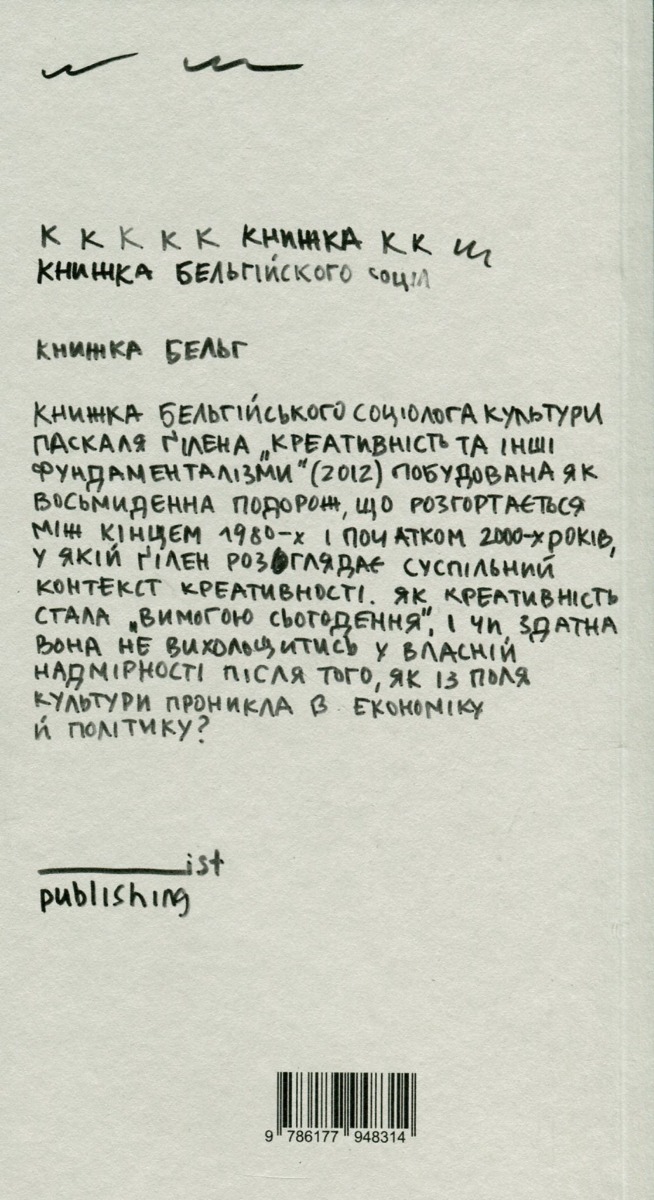 К К К К К КНИЖКА К К
КНИЖКА БЕЛЬГІЙСКОГО СОЦІЛ
КНИЖКА БЕЛЬГ
КНИЖКА БЕЛЬГІЙСЬКОГО СОЦІОЛОГА КУЛЬТУРИ
ПАСКАЛЯ ҐІЛЕНА „КРЕАТИВНІСТЬ ТА ІНШІ
ФУНДАМЕНТАЛІЗМИ“ (2012) ПОБУДОВАНА ЯК
ВОСЬМИДЕННА ПОДОРОЖ, ЩО РОЗГОРТАЄТЬСЯ
МІЖ КІНЦЕМ 1980-х І ПОЧАТКОМ 2000-х РОКІВ,
У ЯКІЙ ҐІЛЕН РОЗГЛЯДАЄ СУСПІЛЬНИЙ
КОНТЕКСТ КРЕАТИВНОСТІ. ЯК КРЕАТИВНІСТЬ
СТАЛА „ВИМОГОЮ СЬОГОДЕННЯ“, І ЧИ ЗДАТНА
ВОНА НЕ ВИХОЛЩИТИСЬ У ВЛАСНІЙ
НАДМІРНОСТІ ПІСЛЯ ТОГО, ЯК ІЗ ПОЛЯ
КУЛЬТУРИ ПРОНИКЛА В ЕКОНОМІКУ
Й ПОЛІТИКУ?
_____ist
publishing
9 786177 948314